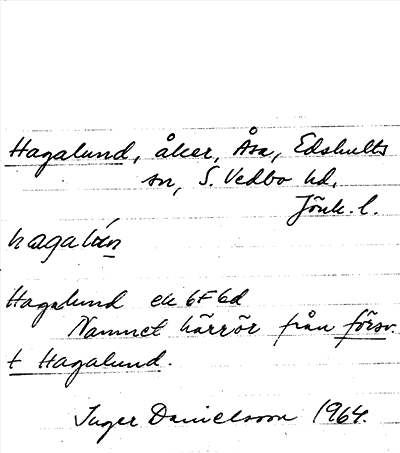 Hagalund, åker, Åsa, Edshults
sn, S. Vedbo hd,
Jönk. l.
hagalún
Hagalund ek 6F6d
Namnet härrör från försv.
t Hagalund.
Inger Danielsson 1964.